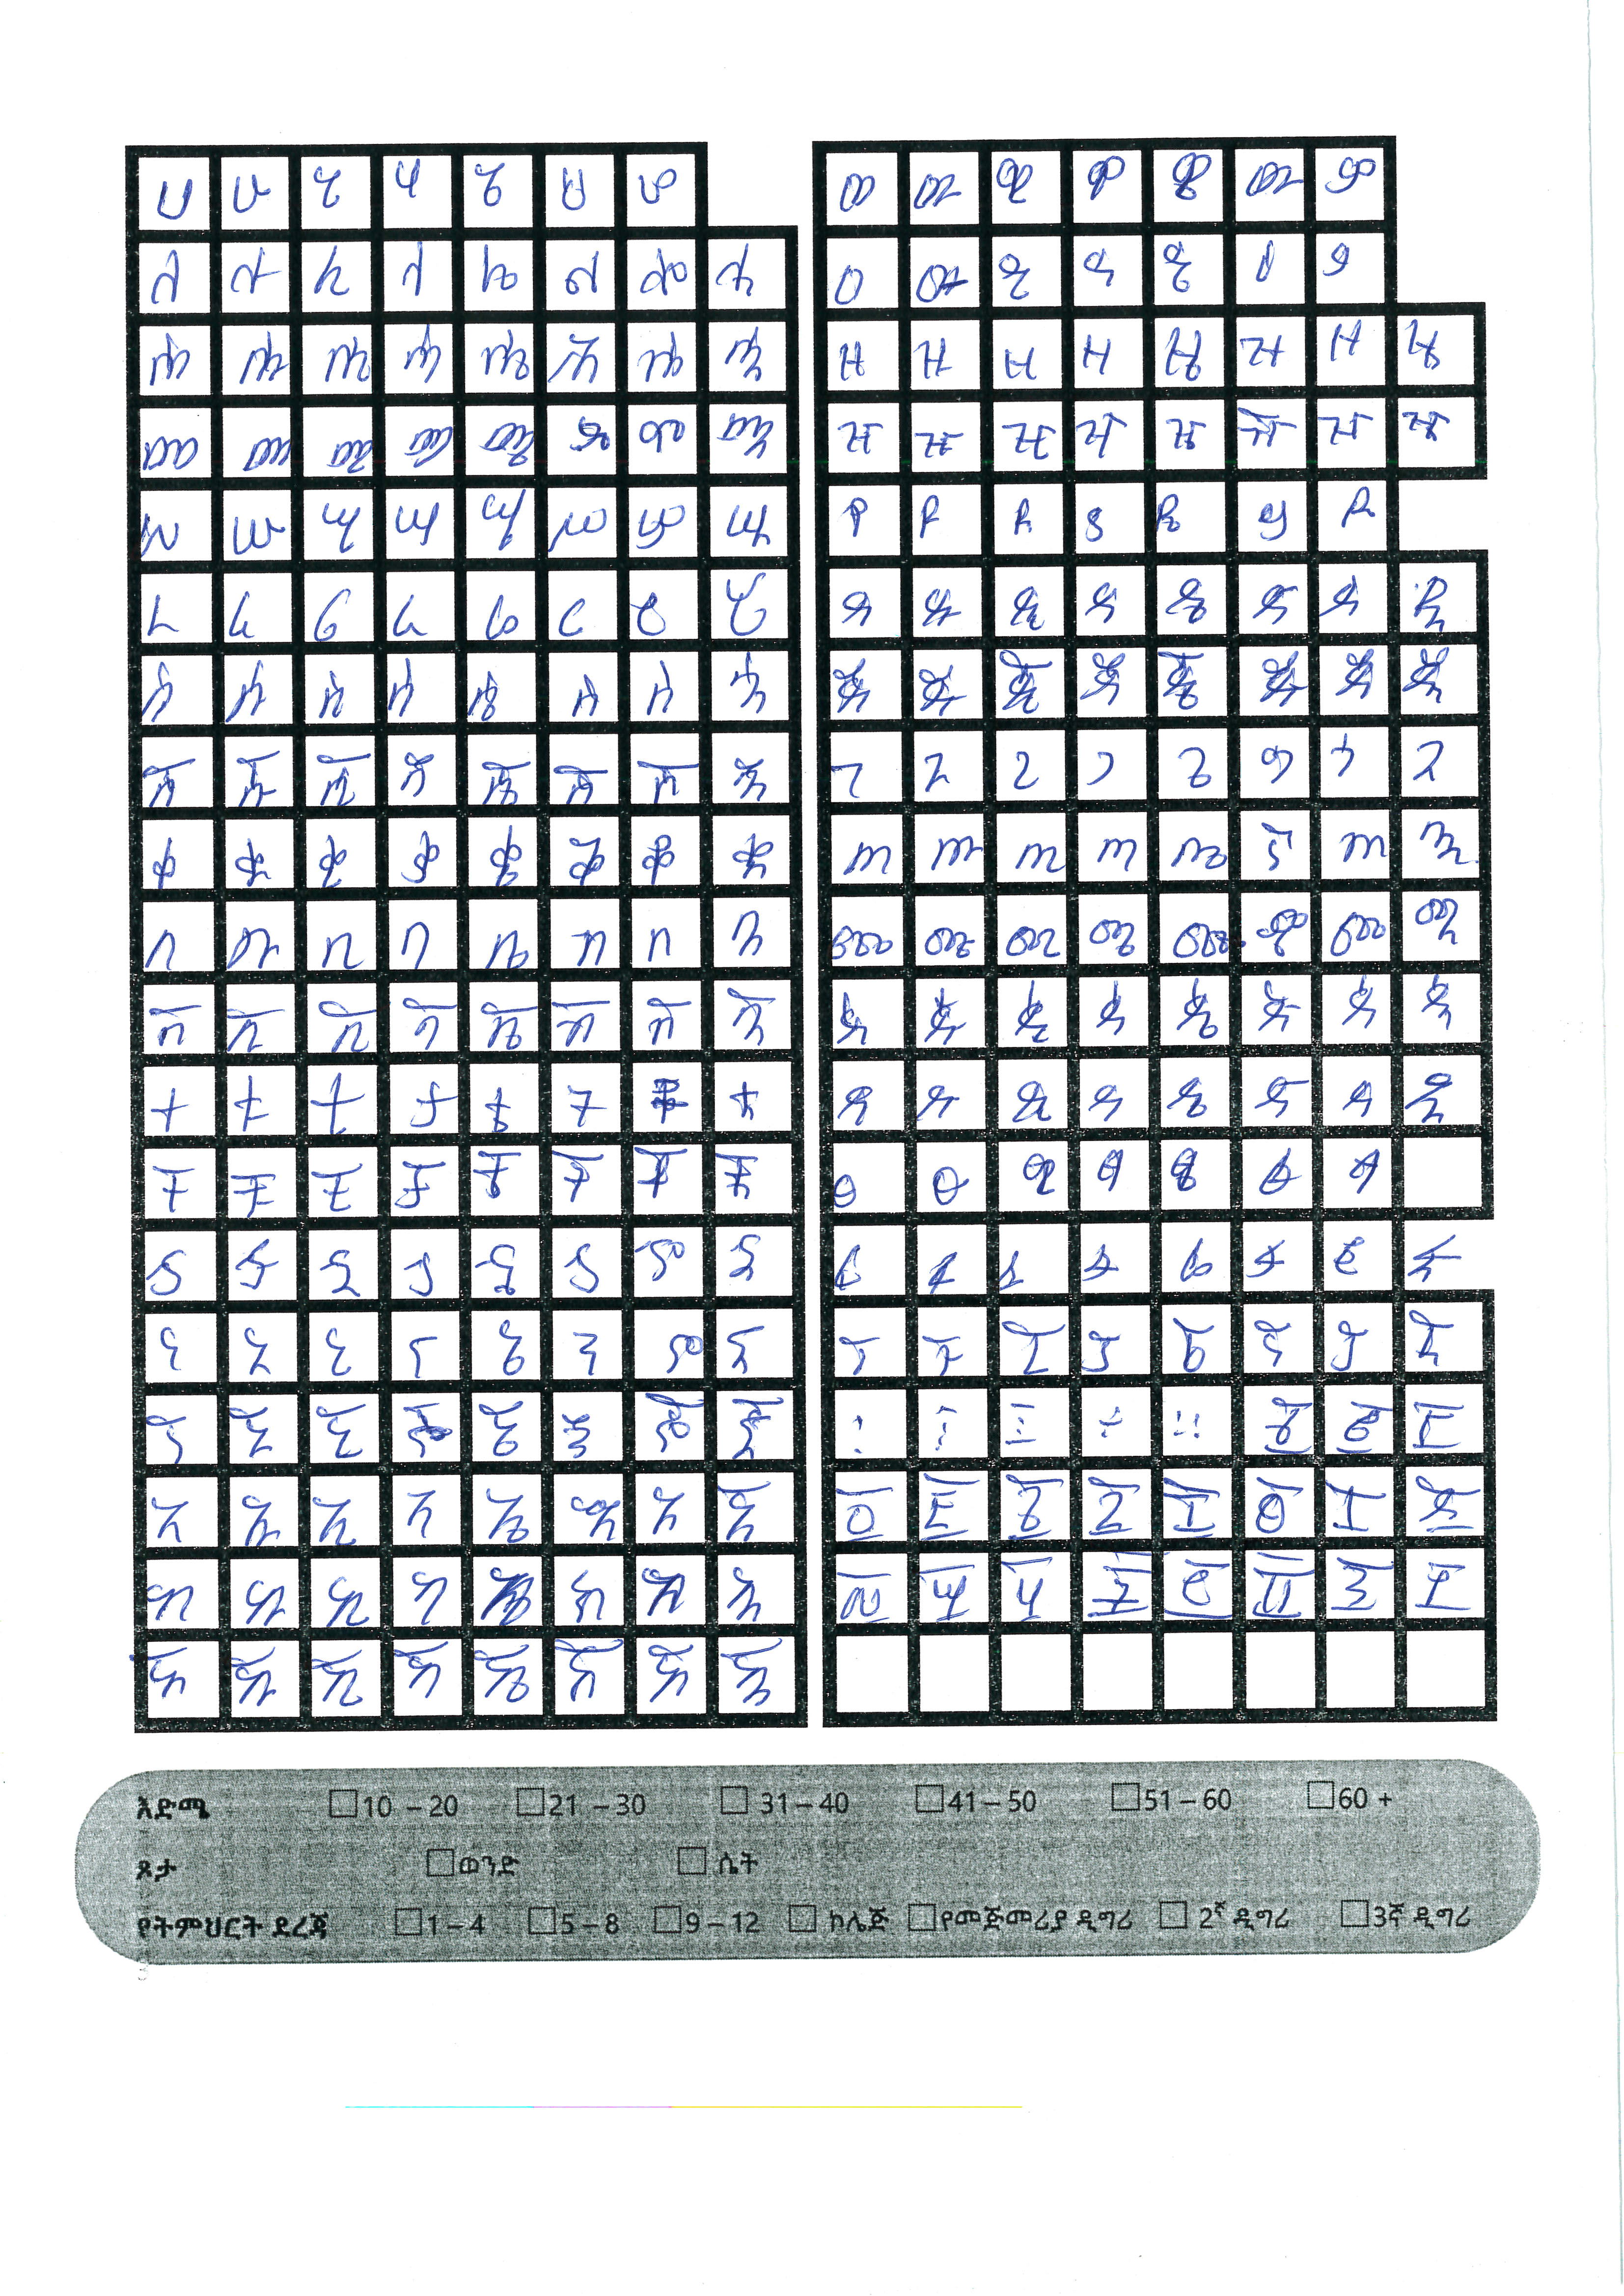 ሀ ሁ ሂ ሃ ሄ ህ ሆ
ለ ሉ ሊ ላ ሌ ል ሎ ሏ
ሐ ሑ ሒ ሓ ሔ ሕ ሖ ሗ
መ ሙ ሚ ማ ሜ ም ሞ ሟ
ሠ ሡ ሢ ሣ ሤ ሥ ሦ ሧ
ረ ሩ ሪ ራ ሬ ር ሮ ሯ
ሰ ሱ ሲ ሳ ሴ ስ ሶ ሷ
ሸ ሹ ሺ ሻ ሼ ሽ ሾ ሿ
ቀ ቁ ቂ ቃ ቄ ቅ ቆ ቋ
በ ቡ ቢ ባ ቤ ብ ቦ ቧ
ቨ ቩ ቪ ቫ ቬ ቭ ቮ ቯ
ተ ቱ ቲ ታ ቴ ት ቶ ቷ
ቸ ቹ ቺ ቻ ቼ ች ቾ ቿ
ኀ ኁ ኂ ኃ ኄ ኅ ኆ ኋ
ነ ኑ ኒ ና ኔ ን ኖ ኗ
ኘ ኙ ኚ ኛ ኜ ኝ ኞ ኟ
አ ኡ ኢ ኣ ኤ እ ኦ ኧ
ከ ኩ ኪ ካ ኬ ክ ኮ ኳ
ኸ ኹ ኺ ኻ ኼ ኽ ኾ ዃ
ወ ዉ ዊ ዋ ዌ ው ዎ
ዐ ዑ ዒ ዓ ዔ ዕ ዖ
ዘ ዙ ዚ ዛ ዜ ዝ ዞ ዟ
ዠ ዡ ዢ ዣ ዤ ዥ ዦ ዧ
የ ዩ ዪ ያ ዬ ይ ዮ
ደ ዱ ዲ ዳ ዴ ድ ዶ ዷ
ጀ ጁ ጂ ጃ ጄ ጅ ጆ ጇ
ገ ጉ ጊ ጋ ጌ ግ ጎ ጓ
ጠ ጡ ጢ ጣ ጤ ጥ ጦ ጧ
ጨ ጩ ጪ ጫ ጬ ጭ ጮ ጯ
ጰ ጱ ጲ ጳ ጴ ጵ ጶ ጷ
ጸ ጹ ጺ ጻ ጼ ጽ ጾ ጿ
ፀ ፁ ፂ ፃ ፄ ፅ ፆ
ፈ ፉ ፊ ፋ ፌ ፍ ፎ ፏ
ፐ ፑ ፒ ፓ ፔ ፕ ፖ ፗ
፡ ፥ ፤ ÷ ። ፩ ፪ ፫
፬ ፭ ፮ ፯ ፰ ፱ ፲ ፳
፴ ፵ ፶ ፷ ፸ ፹ ፺ ፻
እድሜ 10 – 20 21 – 30 31 – 40 41 – 50 51 – 60 60 +
ጾታ ወንድ ሴት
የትምህርት ደረጃ 1 – 4 5 – 8 9 – 12 ኮሌጅ የመጀመሪያ ዲግሪ 2ኛ ዲግሪ 3ኛ ዲግሪ